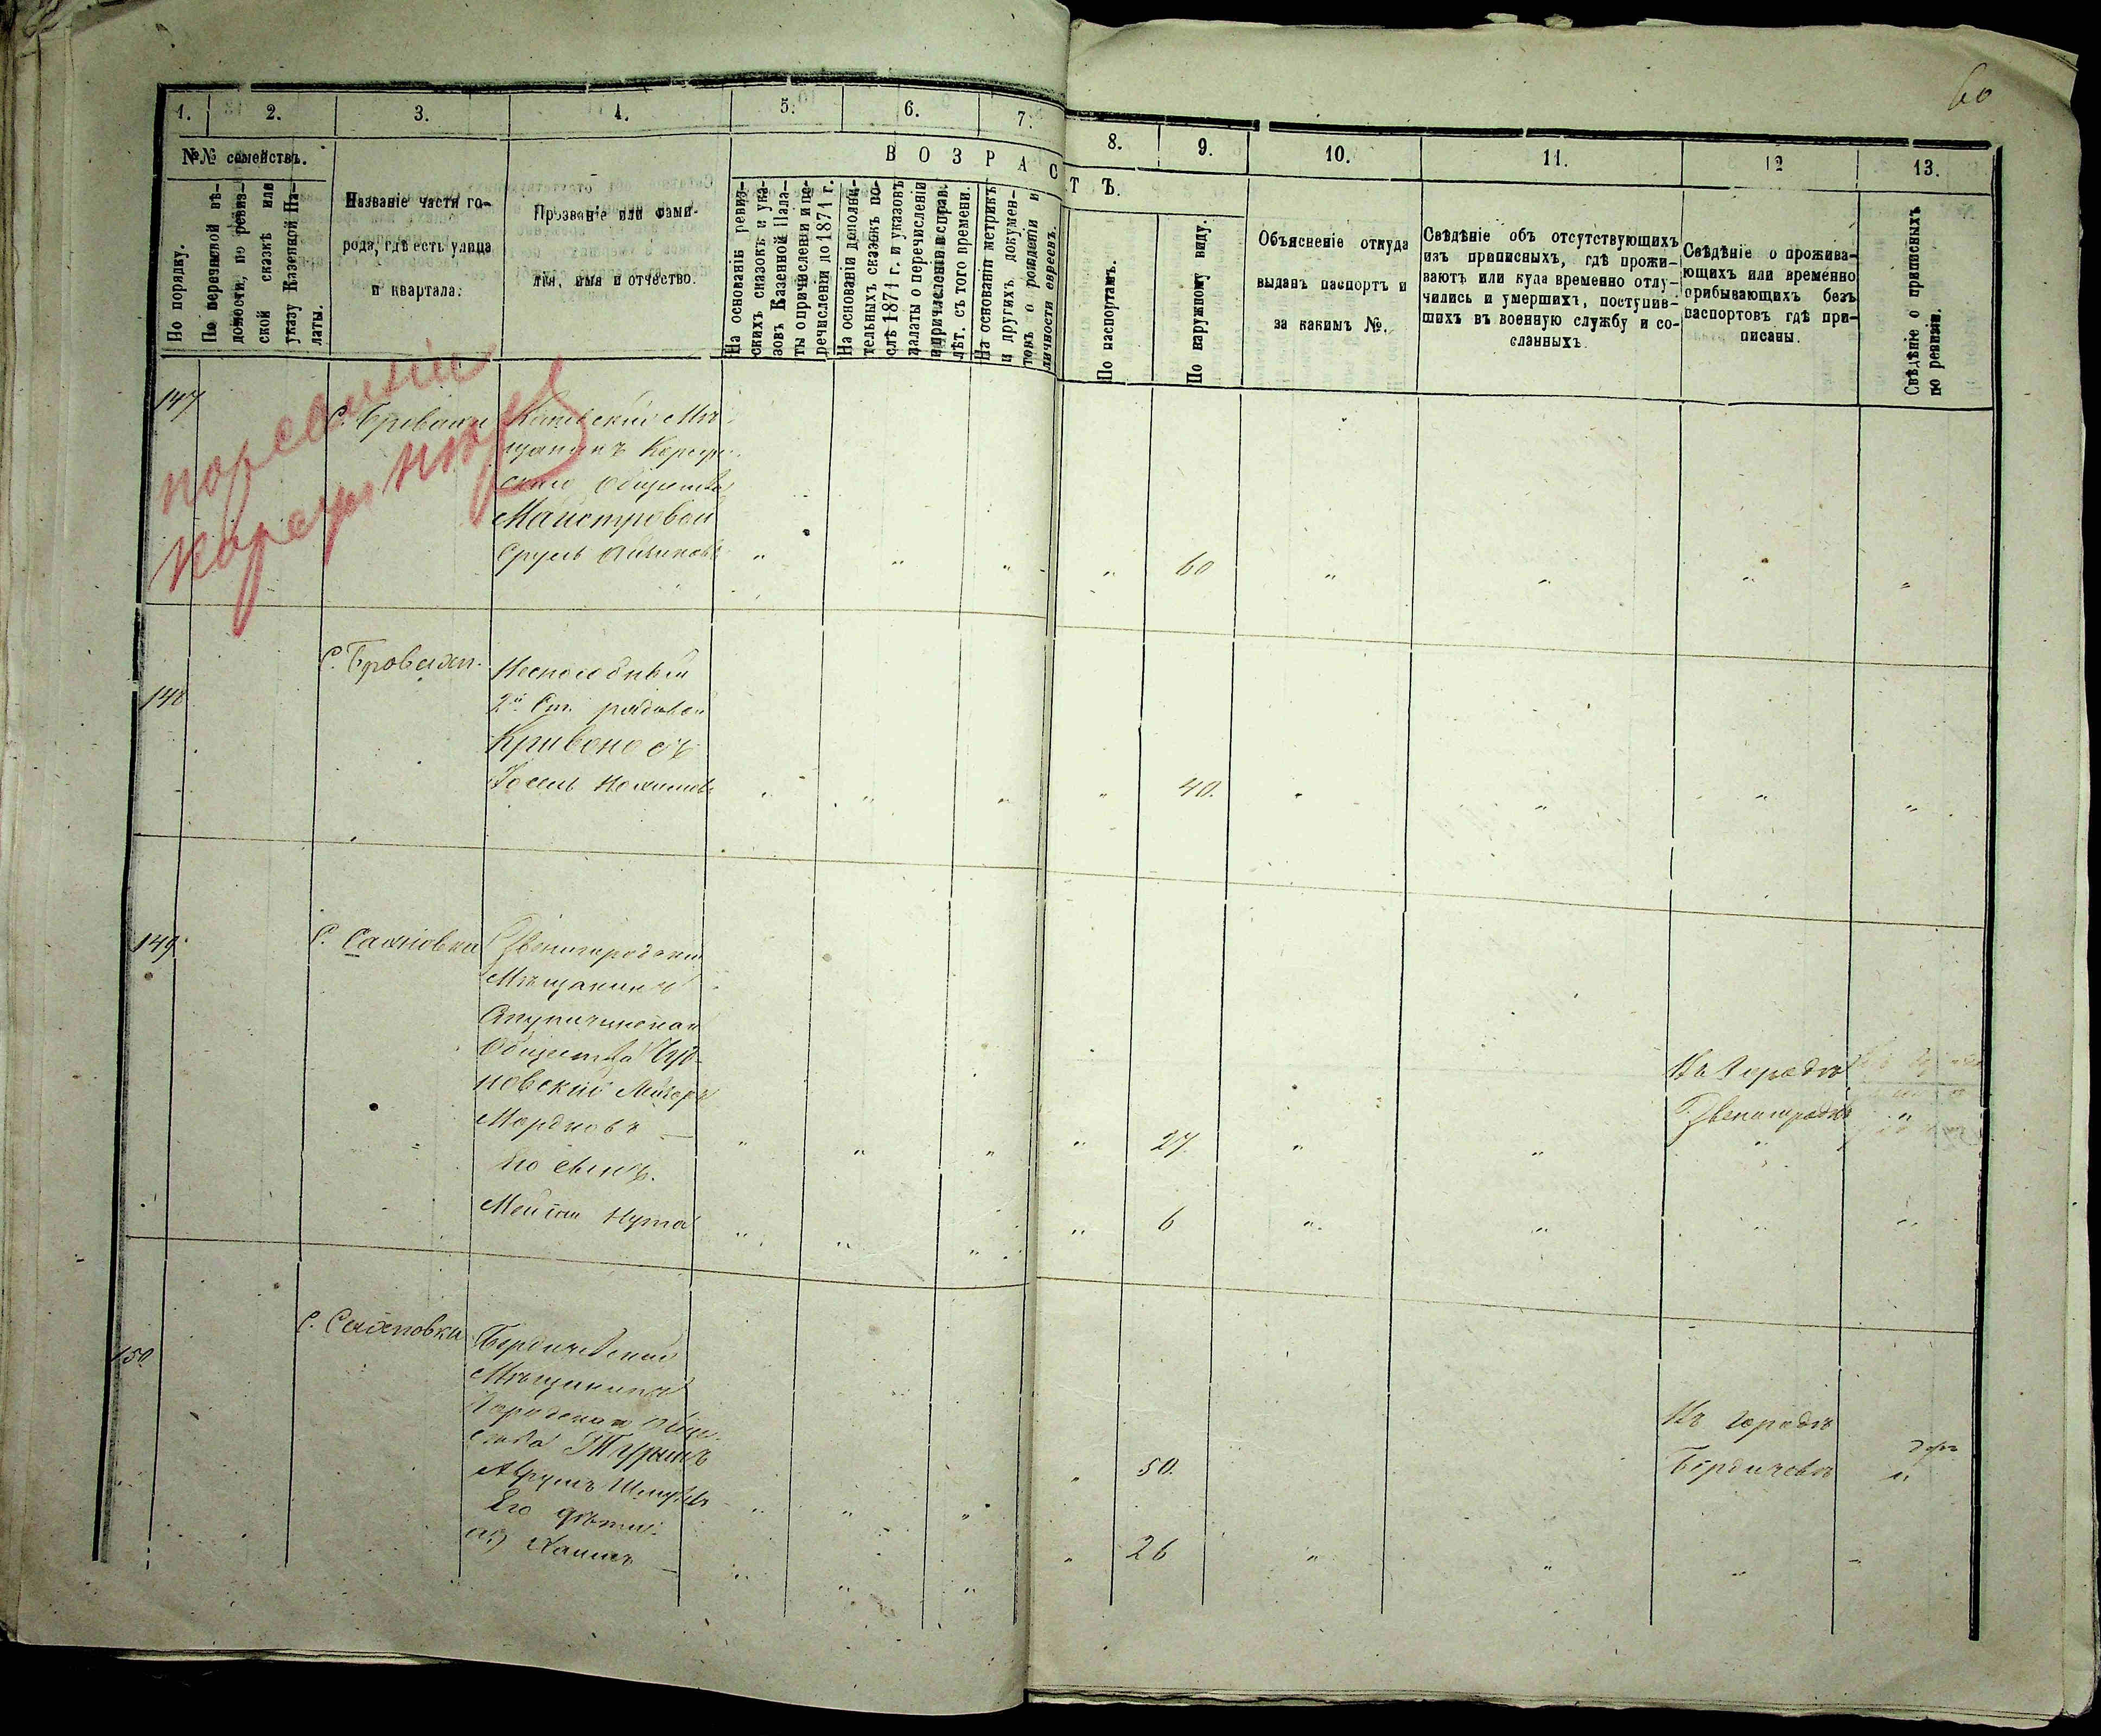 60
1. 2. 3. 4. 5. 6. 7. 8. 9. 10. 11. 12 13.
№№ семействъ.
ВОЗРАСТЪ.
По порядку.
По перечневой вѣ-
домости, по ревиз-
ской сказкѣ или
указу Казенной Па-
латы.
Названіе части го-
рода, гдѣ есть улица
и квартала.
Прозваніе или фами-
лія, имя и отчество.
На основаніи ревиз-
скихъ сказокъ и ука-
зовъ Казенной Пала-
ты о причисленіи и пе-
речисленіи до 1871 г.
На основаніи дополни-
тельныхъ сказокъ по-
слѣ 1871 г. и указовъ
палаты о перечисленіи
и причисленіи исправ.
лѣт. съ того времени.
На основаніи метрикъ
и другихъ докумен-
товъ о рожденіи и
личности евреевъ.
По паспортамъ.
По наружному виду.
Объясненіе откуда
выданъ паспортъ и
за какимъ №.
Свѣдѣніе объ отсутствующихъ
изъ приписныхъ, гдѣ прожи-
ваютъ или куда временно отлу-
чились и умершихъ, поступив-
шихъ въ военную службу и со-
сланныхъ.
Свѣдѣніе о прожива-
ющихъ или временно
прибывающихъ безъ
паспортовъ гдѣ при-
писаны.
Свѣдѣніе о приписныхъ
по ревизіи.
147 С. Бровахи Каневскій Мѣ-
щанинъ Корсун-
скаго Общества
Майстровой
Срулъ " " " " 60 " " " "
148 С. Бровахи. Неспособный
2й Ст. рядовой
Кривоносъ
" " " " 40. " " " "
149. С. Сахновка Звенигородскій
Мѣщанинъ
Общества
новскій Мейеръ
Мордковъ " " " " 27. " " " "
Въ Городѣ
Звенигородкѣ
Его сынъ.
" " " " 6 " " " "
150 С. Сахновка Бердичевскій
Мѣщанинъ
Городскаго Обще-
ства
Аврумъ " " " " 50.
Въ городѣ
Бердичевѣ "
Его дѣти:
а) Хаимъ " " " " 26 " " " "